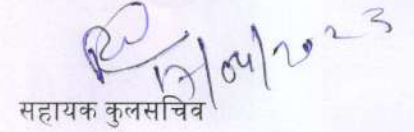 17/04/2023
सहायक कुलसचिव